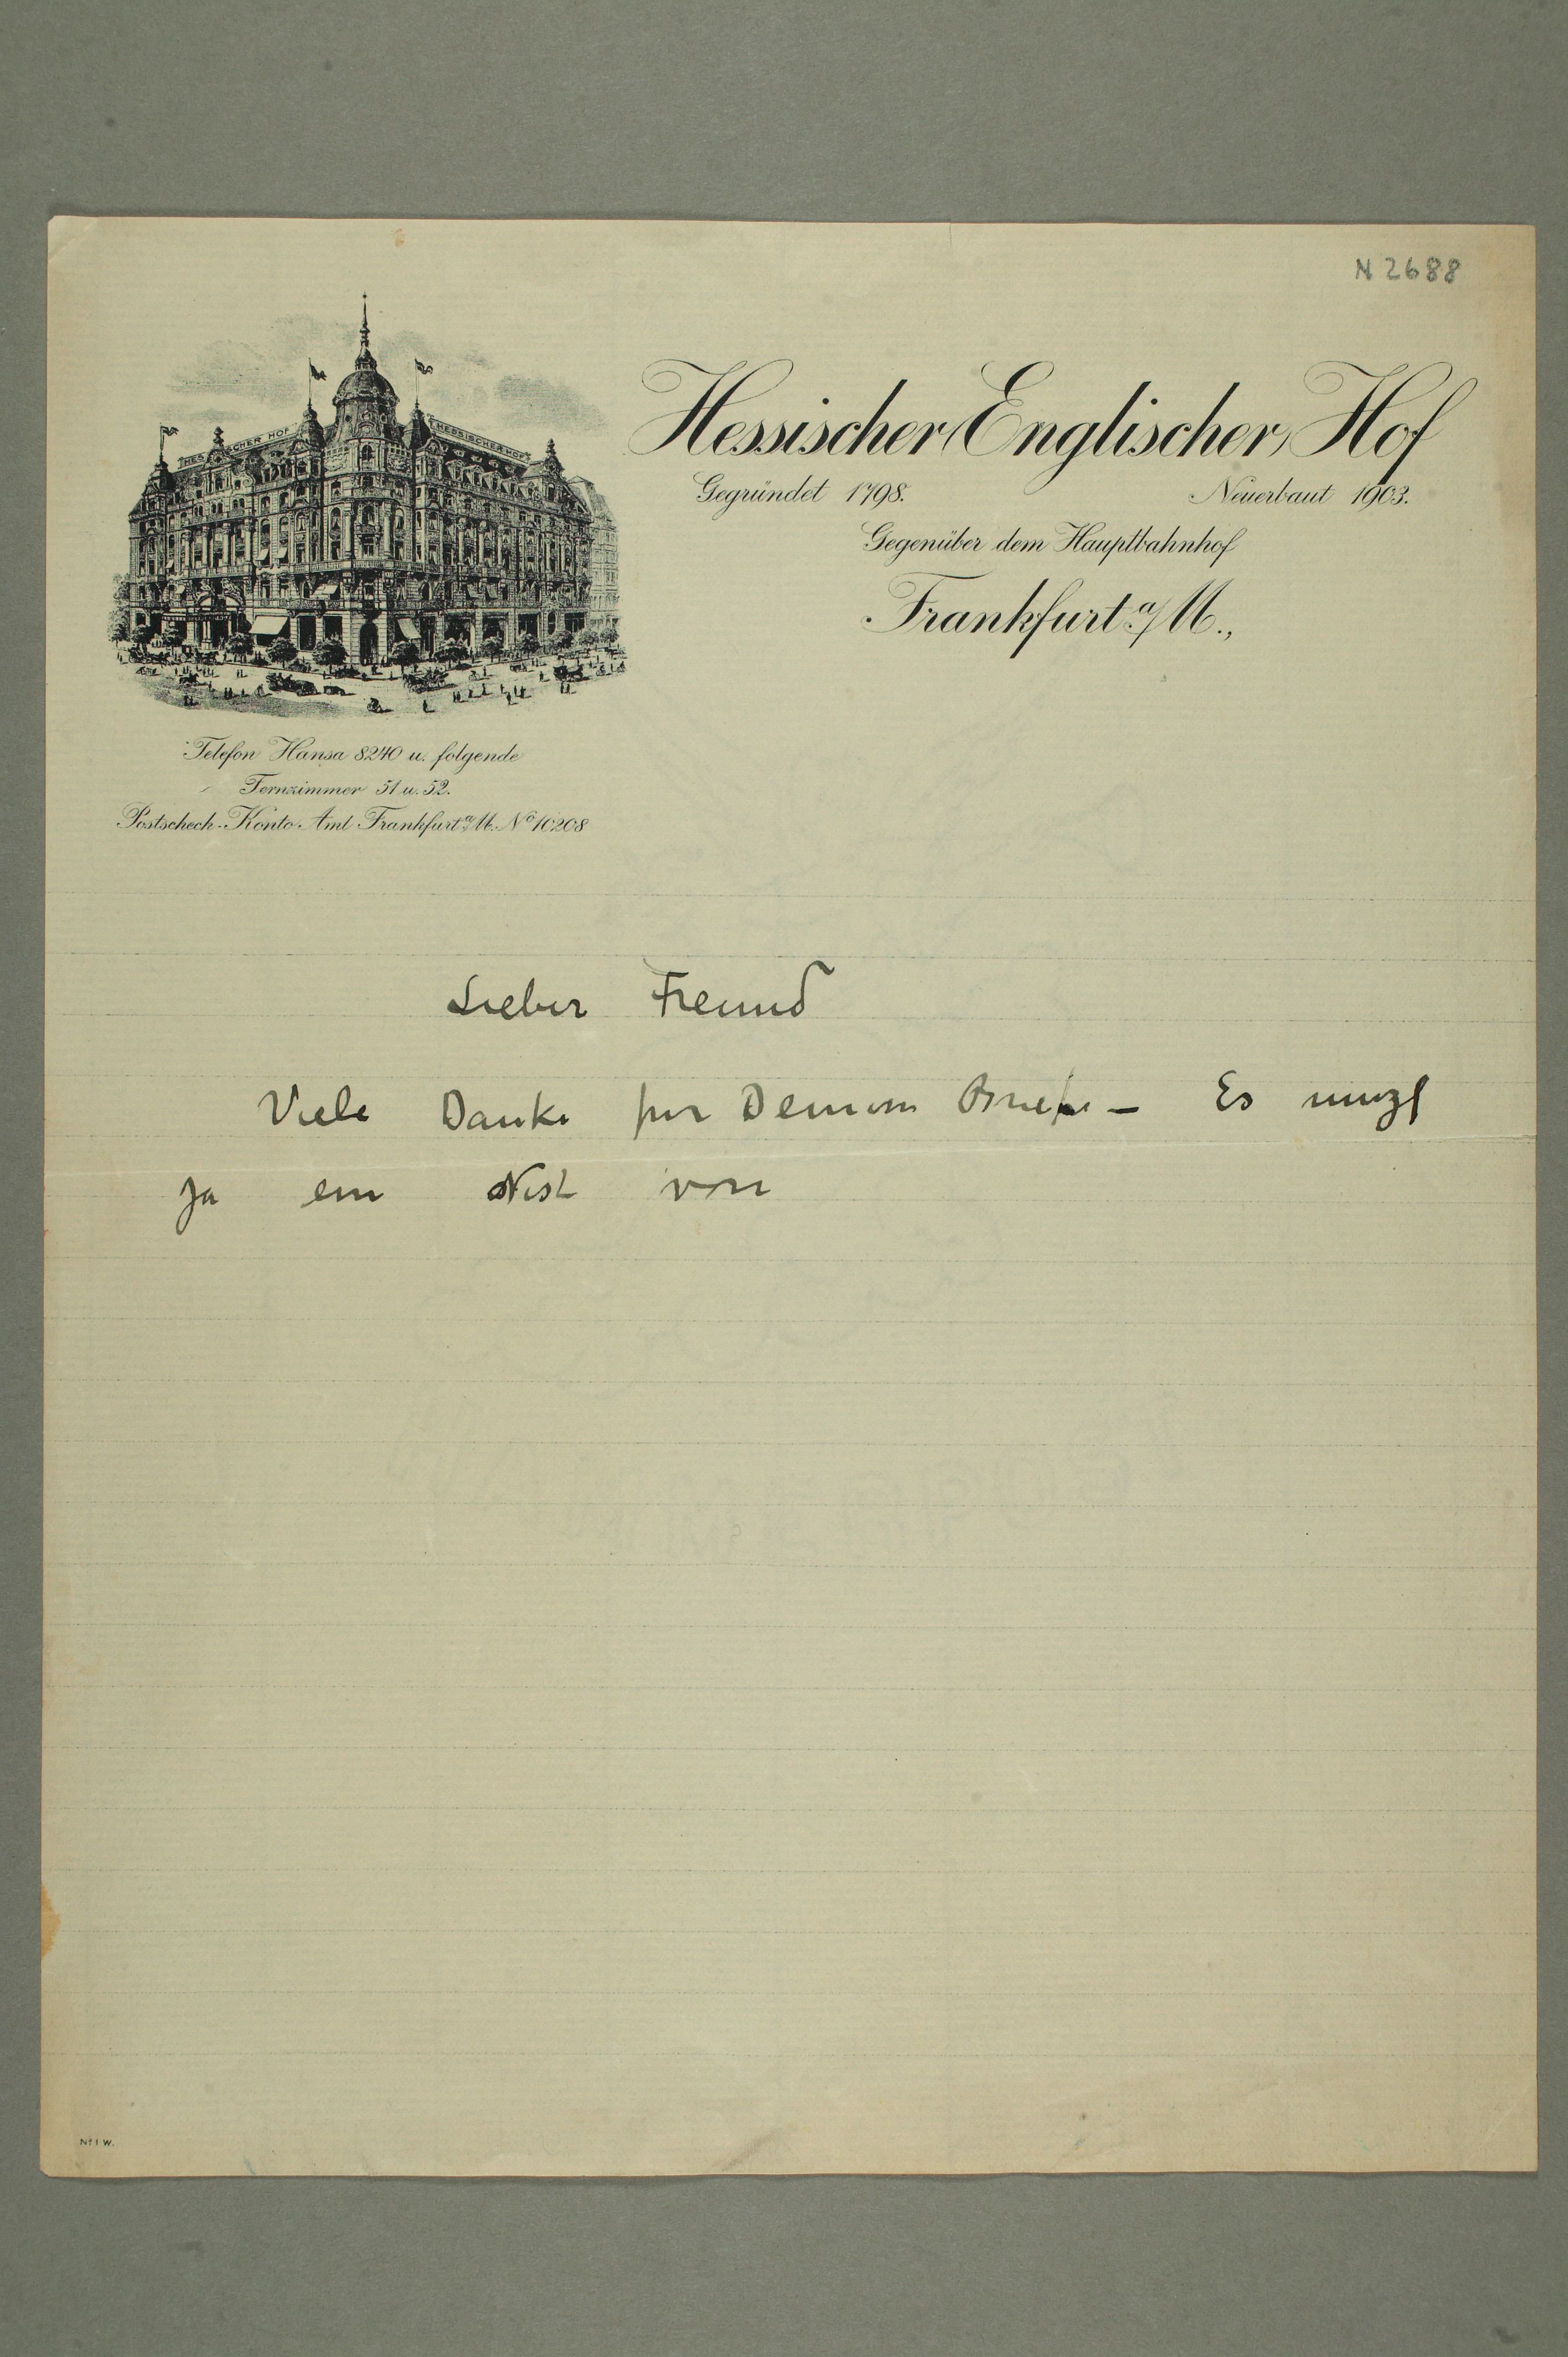 N 2688
HESSISCHER HOF
HESSISCHER HOF
Hessischer (Englischer) Hof
Gegründet 1798. Neuerbaut 1903.
Gegenüber dem Hauptbahnhof
Frankfurt a/M.,
Telefon Hansa 8240 u. folgende
Fernzimmer 51 u. 52.
Postscheck-Konto Amt Frankfurt a/M. No 10208
Lieber Freund
Viele Danke fur Deinem Briefe – Es
ja ein Nest von
No 1 W.